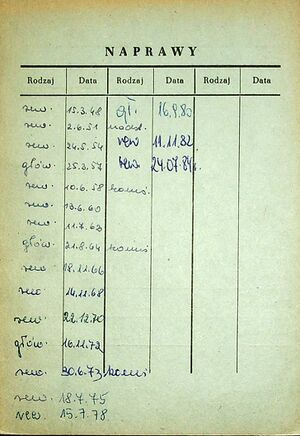 NAPRAWY
Rodzaj Data Rodzaj Data Rodzaj Data
rew. 15.3.48 gł. 16.9.80
rew. 2.6.51
rew. 24.5.54 rew 11.11.82
głów. 25.3.57 rew. 24.07.84r.
rew. 10.6.58
rew. 13.6.60
rew. 11.7.63
głów. 21.8.64
rew 18.11.66
rew 14.11.68
rew. 22.12.70
głów. 16.11.72
rew. 30.6.73
rew. 18.7.75
rew. 15.7.78